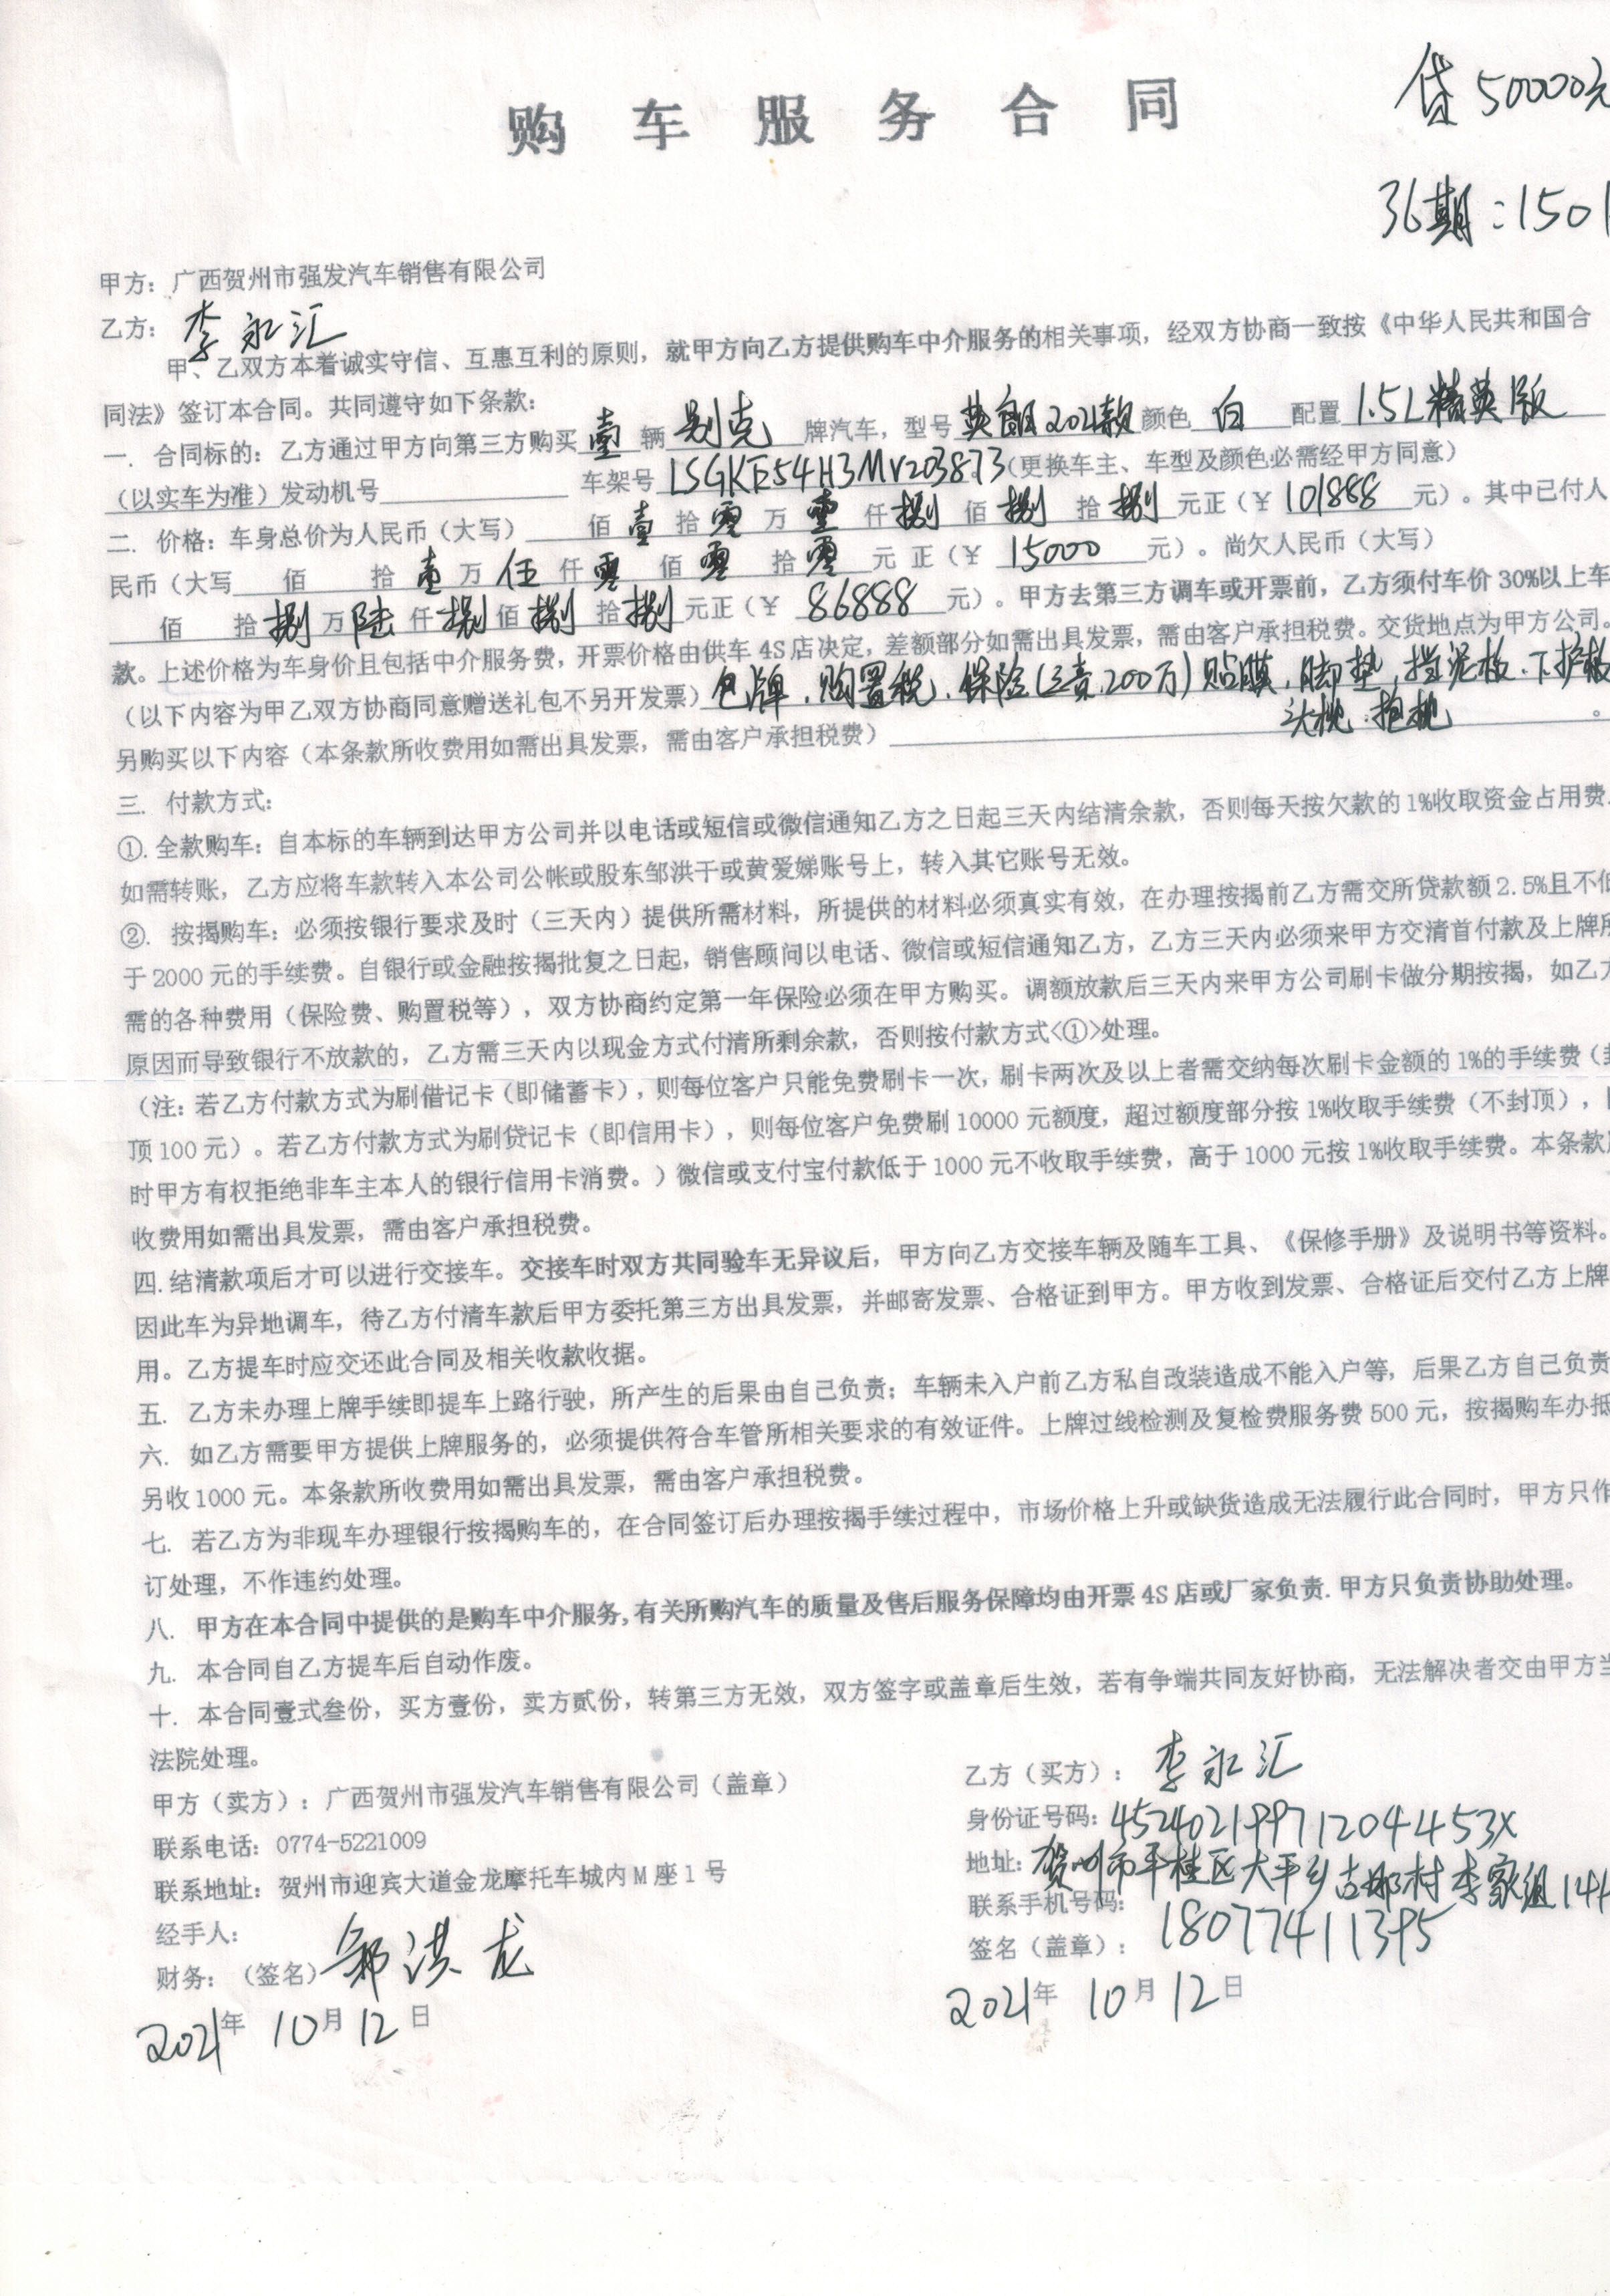 购车服务合同
贷50000元
36期：1501
甲方：广西贺州市强发汽车销售有限公司
乙方：李永汇
甲、乙双方本着诚实守信、互惠互利的原则，就甲方向乙方提供购车中介服务的相关事项，经双方协商一致按《中华人民共和国合
同法》签订本合同。共同遵守如下条款：
一. 合同标的：乙方通过甲方向第三方购买壹辆别克牌汽车，型号英朗2021款颜色白配置1.5L精英版
（以实车为准）发动机号 车架号LSGKE54H3MV203873（更换车主、车型及颜色必需经甲方同意）
二. 价格：车身总价为人民币（大写） 佰壹拾零万壹仟捌佰捌拾捌元正（￥101888元）。其中已付人
民币（大写 佰 拾壹万伍仟零佰零拾零元正（￥15000元）。尚欠人民币（大写）
佰 拾捌万陆仟捌佰捌拾捌元正（￥86888元）。甲方去第三方调车或开票前，乙方须付车价30%以上车
款。上述价格为车身价且包括中介服务费，开票价格由供车4S店决定，差额部分如需出具发票，需由客户承担税费。交货地点为甲方公司。
（以下内容为甲乙双方协商同意赠送礼包不另开发票）包牌.购置税.保险(三责.200万)贴膜.脚垫,挡泥板.下护板
头枕.抱枕。
另购买以下内容（本条款所收费用如需出具发票，需由客户承担税费）
三. 付款方式：
①.全款购车：自本标的车辆到达甲方公司并以电话或短信或微信通知乙方之日起三天内结清余款，否则每天按欠款的1%收取资金占用费.
如需转账，乙方应将车款转入本公司公帐或股东邹洪干或黄爱娣账号上，转入其它账号无效。
②. 按揭购车：必须按银行要求及时（三天内）提供所需材料，所提供的材料必须真实有效，在办理按揭前乙方需交所贷款额2.5%且不低
于2000元的手续费。自银行或金融按揭批复之日起，销售顾问以电话、微信或短信通知乙方，乙方三天内必须来甲方交清首付款及上牌所
需的各种费用（保险费、购置税等），双方协商约定第一年保险必须在甲方购买。调额放款后三天内来甲方公司刷卡做分期按揭，如乙方
原因而导致银行不放款的，乙方需三天内以现金方式付清所剩余款，否则按付款方式<①>处理。
（注：若乙方付款方式为刷借记卡（即储蓄卡），则每位客户只能免费刷卡一次，刷卡两次及以上者需交纳每次刷卡金额的1%的手续费（封
顶100元）。若乙方付款方式为刷贷记卡（即信用卡），则每位客户免费刷10000元额度，超过额度部分按1%收取手续费（不封顶），
时甲方有权拒绝非车主本人的银行信用卡消费。）微信或支付宝付款低于1000元不收取手续费，高于1000元按1%收取手续费。本条款
收费用如需出具发票，需由客户承担税费。
四.结清款项后才可以进行交接车。交接车时双方共同验车无异议后，甲方向乙方交接车辆及随车工具、《保修手册》及说明书等资料。
因此车为异地调车，待乙方付清车款后甲方委托第三方出具发票，并邮寄发票、合格证到甲方。甲方收到发票、合格证后交付乙方上牌
用。乙方提车时应交还此合同及相关收款收据。
五. 乙方未办理上牌手续即提车上路行驶，所产生的后果由自己负责；车辆未入户前乙方私自改装造成不能入户等，后果乙方自己负责
六. 如乙方需要甲方提供上牌服务的，必须提供符合车管所相关要求的有效证件。上牌过线检测及复检费服务费500元，按揭购车办抵
另收1000元。本条款所收费用如需出具发票，需由客户承担税费。
七. 若乙方为非现车办理银行按揭购车的，在合同签订后办理按揭手续过程中，市场价格上升或缺货造成无法履行此合同时，甲方只作
订处理，不作违约处理。
八. 甲方在本合同中提供的是购车中介服务,有关所购汽车的质量及售后服务保障均由开票4S店或厂家负责.甲方只负责协助处理。
九. 本合同自乙方提车后自动作废。
十. 本合同壹式叁份，买方壹份，卖方贰份，转第三方无效，双方签字或盖章后生效，若有争端共同友好协商，无法解决者交由甲方当
法院处理。
甲方（卖方）：广西贺州市强发汽车销售有限公司（盖章）
联系电话：0774-5221009
联系地址：贺州市迎宾大道金龙摩托车城内M座1号
经手人：
财务：（签名）邹洪龙
2021年10月12日
乙方（买方）：李永汇
身份证号码：45240219971204453X
地址：贺州市平桂区大平乡古那村李家组14
联系手机号码：18077411395
签名（盖章）：
2021年10月12日